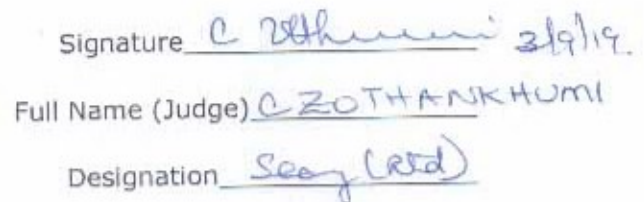 Signature C Zothankhumi 3/9/19.
Full Name (Judge) C ZOTHANKHUMI
Designation Secy (Retd)